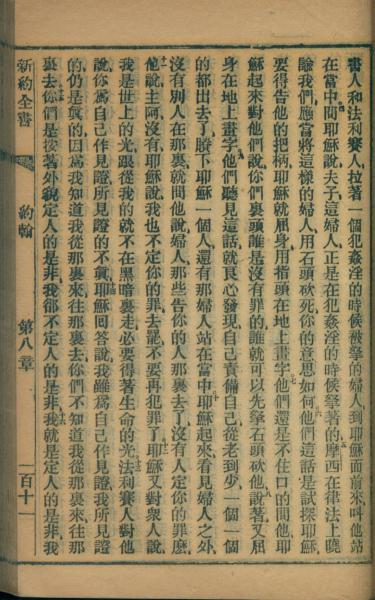 書人和法利賽人拉著一個犯姦淫的時候被拏的婦人到耶穌面前來叫他站
在當中間耶穌說夫子這婦人正是在犯姦淫的時候拏著的摩西在律法上曉
諭我們應當將這樣的婦人用石頭砍死你的意思如何他們這話是試探耶穌
要得告他的把柄耶穌就屈身用指頭在地上畫字他們還是不住口的問他耶
穌起來對他們說你們裏頭誰是沒有罪的誰就可以先拏石頭砍他說著又屈
身在地上畫字他們聽見這話就良心發現自己責備自己從老到少一個一個
的都出去了賸下耶穌一個人還有那婦人站在當中耶穌起來看見婦人之外
沒有別人在那裏就問他說婦人那些告你的人那裏去了沒有人定你的罪麼
他說主阿沒有耶穌說我也不定你的罪去罷不要再犯罪了耶穌又對眾人說
我是世上的光跟從我的就不在黑暗裏走必要得著生命的光法利賽人對他
說你爲自己作見證所見證的不眞耶穌回答說我雖爲自己作見證我所見證
的仍是眞的因爲我知道我從那裏來往那裏去你們不知道我從那裏來往那
裏去你們是按著外貌定人的是非我卻不定人的是非我就是定人的是非我
新約全書 約翰 第八章 一百十一